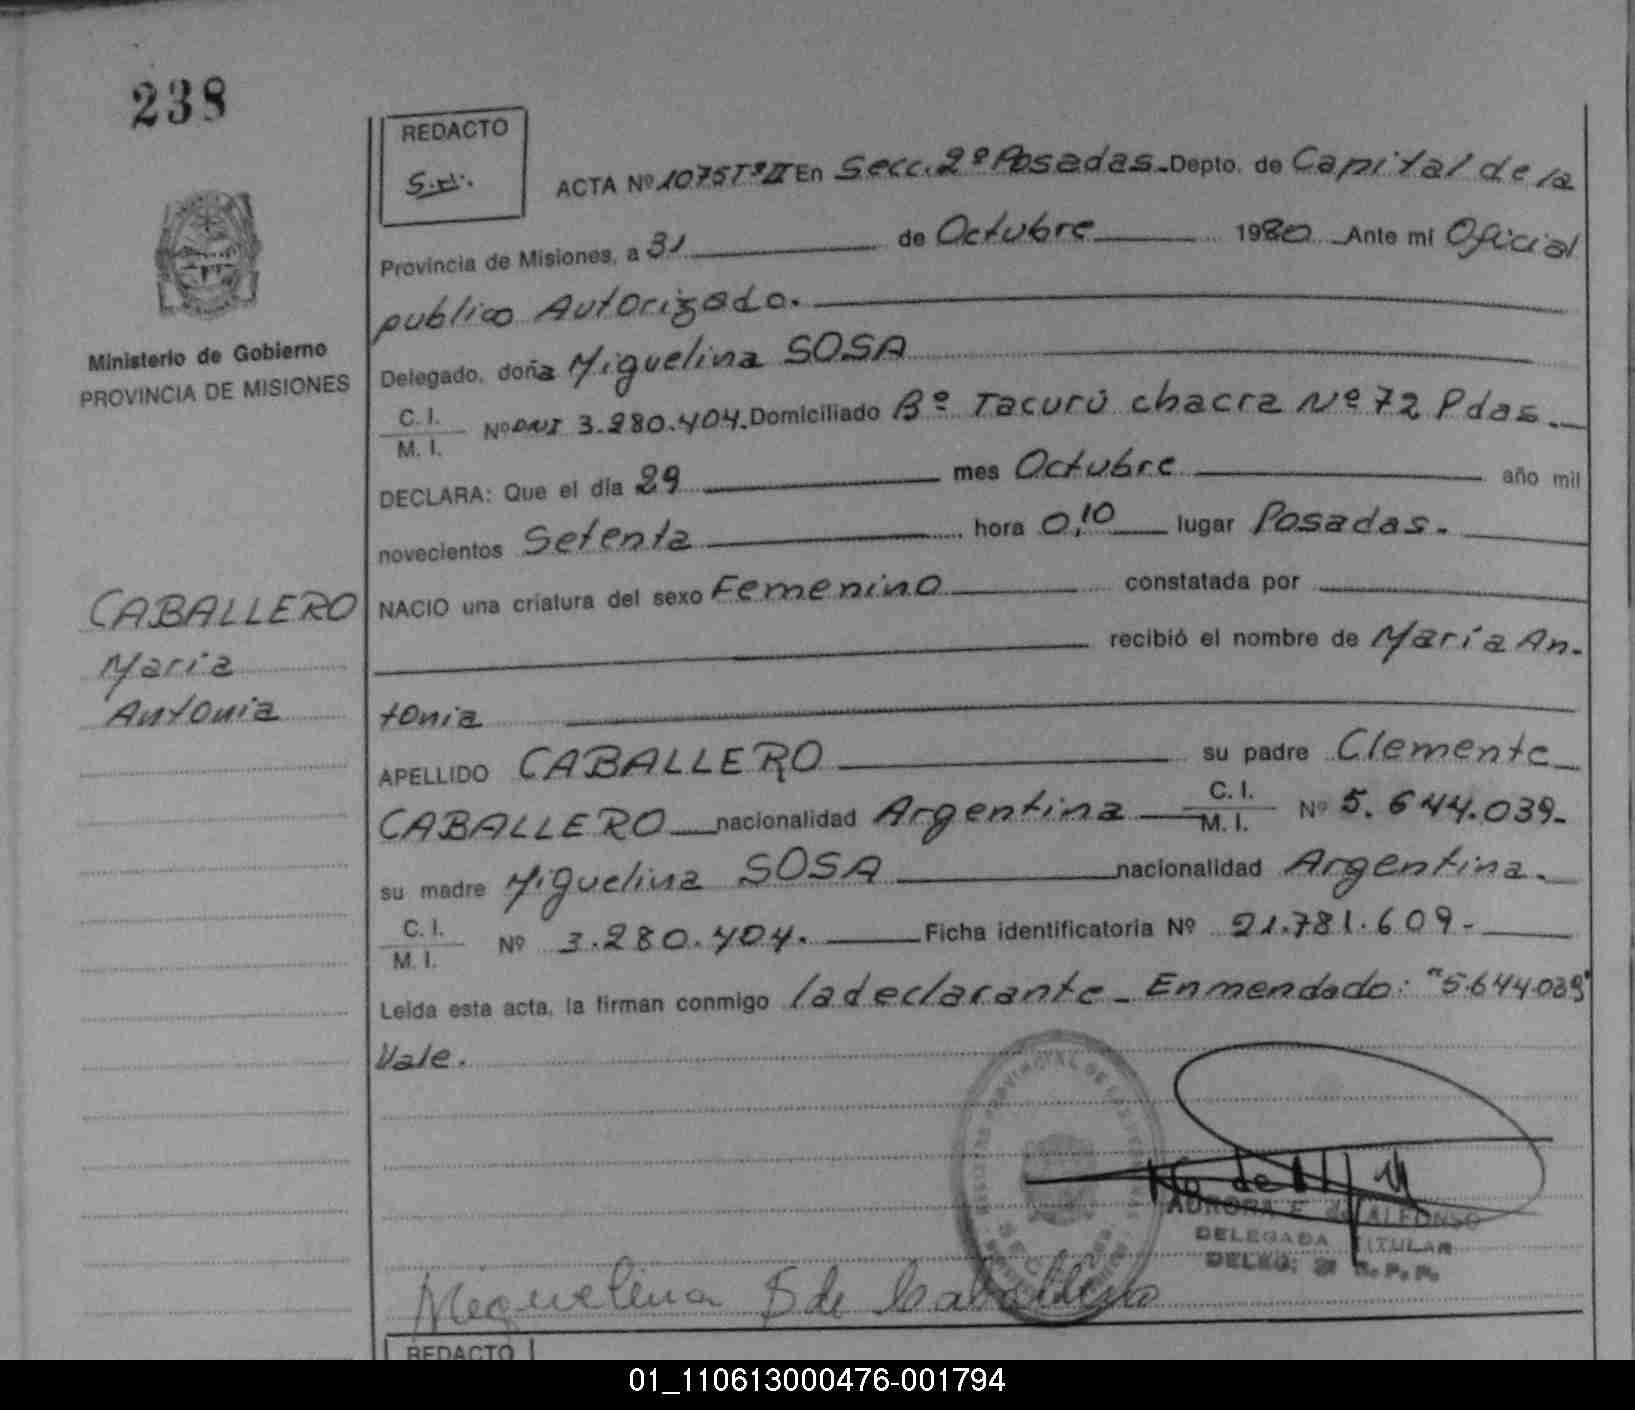 238
REDACTO
S.H.
ACTA Nº 1075 Tº II En Secc. 2º Posadas.- Depto. de Capital de la
Provincia de Misiones, a 31 de Octubre 1980 Ante mi Oficial
publico Autorizado.
Delegado, doña Miguelina SOSA
C. I.
M. I.
Nº DNI 3.280.404. Domiciliado Bº Tacurú chacra Nº 72 Pdas.
DECLARA: Que el día 29 mes Octubre año mil
novecientos Setenta hora 0,10 lugar Posadas.
NACIO una criatura del sexo Femenino constatada por
recibió el nombre de María An-
tonia
APELLIDO CABALLERO su padre Clemente
CABALLERO nacionalidad Argentina C. I. M. I. Nº 5.644.039-
su madre Miguelina SOSA nacionalidad Argentina.
C. I.
M. I.
Nº 3.280.404. Ficha identificatoria Nº 21.781.609-
Leída esta acta, la firman conmigo la declarante - Enmendado: "5.644.039"
Vale.
Ministerio de Gobierno
PROVINCIA DE MISIONES
CABALLERO
Maria
Antonia
AURORA F. de ALFONSO
DELEGADA TITULAR
DELEG: 2ª R.P.P.
Miguelina S de Caballero
REDACTO
01_110613000476-001794